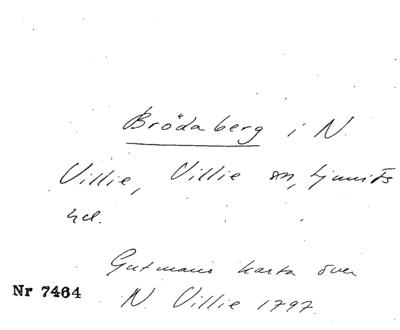 Brödaberg i N.
Villie, Villie sn, Ljunits
hd.
Gutmans karta över
Nr 7464
N. Villie 1797.